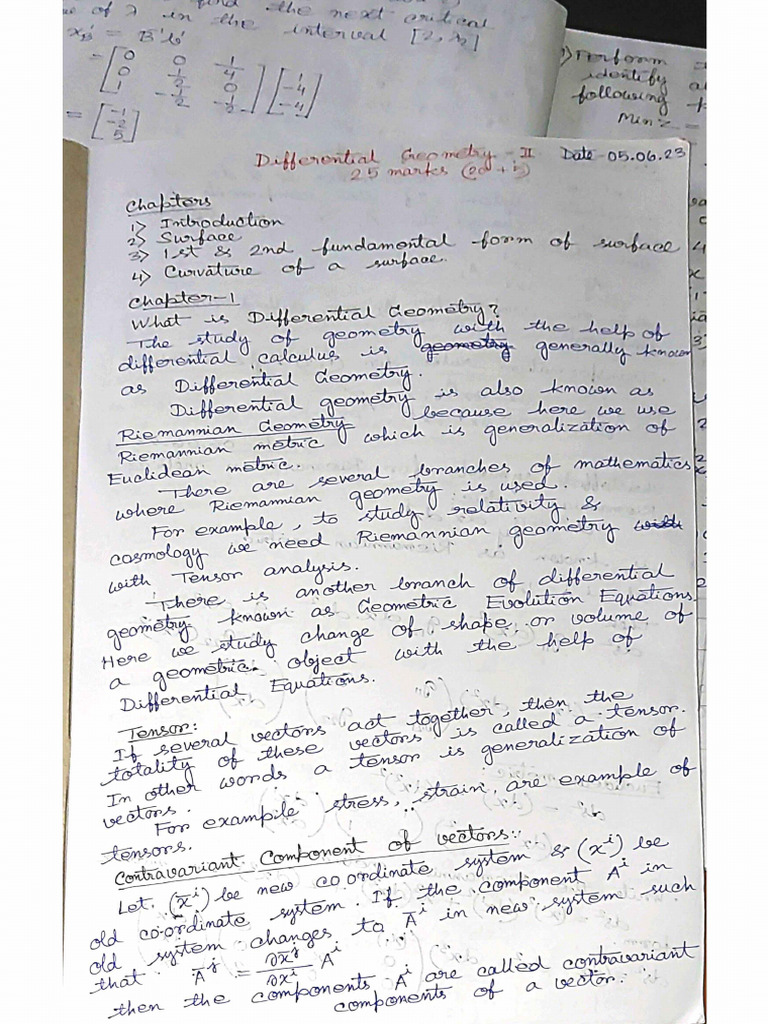 find the next critical
ue of λ in the interval [2, λ2]
xB = B⁻¹b
= [0 0 1/4
0 1/2 0
1 -1/2 -1/2] [-1
-4
-4]
= [-1
-2
5]
Perform
identify
following
Min Z =
Differential Geometry - II Date - 05.06.23
25 marks (20 + 5)
Chapters
1> Introduction
2> Surface
3> 1st & 2nd fundamental form of surface
4> Curvature of a surface.
Chapter-1
What is Differential Geometry?
The study of geometry with the help of
differential calculus is generally known
as Differential Geometry.
Differential geometry is also known as
Riemannian Geometry because here we use
Riemannian metric which is generalization of
Euclidean metric.
There are several branches of mathematics
where Riemannian geometry is used.
For example, to study relativity &
cosmology we need Riemannian geometry
with Tensor analysis.
There is another branch of differential
geometry known as Geometric Evolution Equations.
Here we study change of shape, or volume of
a geometric object with the help of
Differential Equations.
Tensor:
If several vectors act together, then the
totality of these vectors is called a tensor.
In other words a tensor is generalization of
vectors.
For example stress, strain, are example of
tensors.
Contravariant Component of vectors:
Let (x̄ⁱ) be new co-ordinate system & (xⁱ) be
old co-ordinate system. If the component Aⁱ in
old system changes to Āⁱ in new system such
that Āʲ = ∂x̄ʲ/∂xⁱ Aⁱ
then the components Aⁱ are called contravariant
components of a vector.